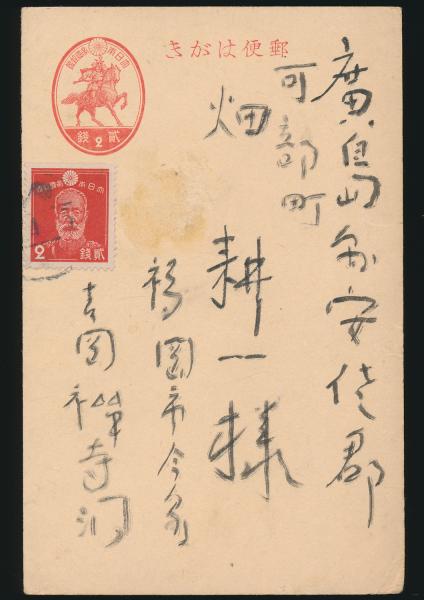 郵便はがき
大日本帝國郵便
2
貳錢
大日本帝國郵便
2
貳錢
廣島縣安佐郡
可部町
畑耕一様
福岡市今泉
吉岡禅寺洞